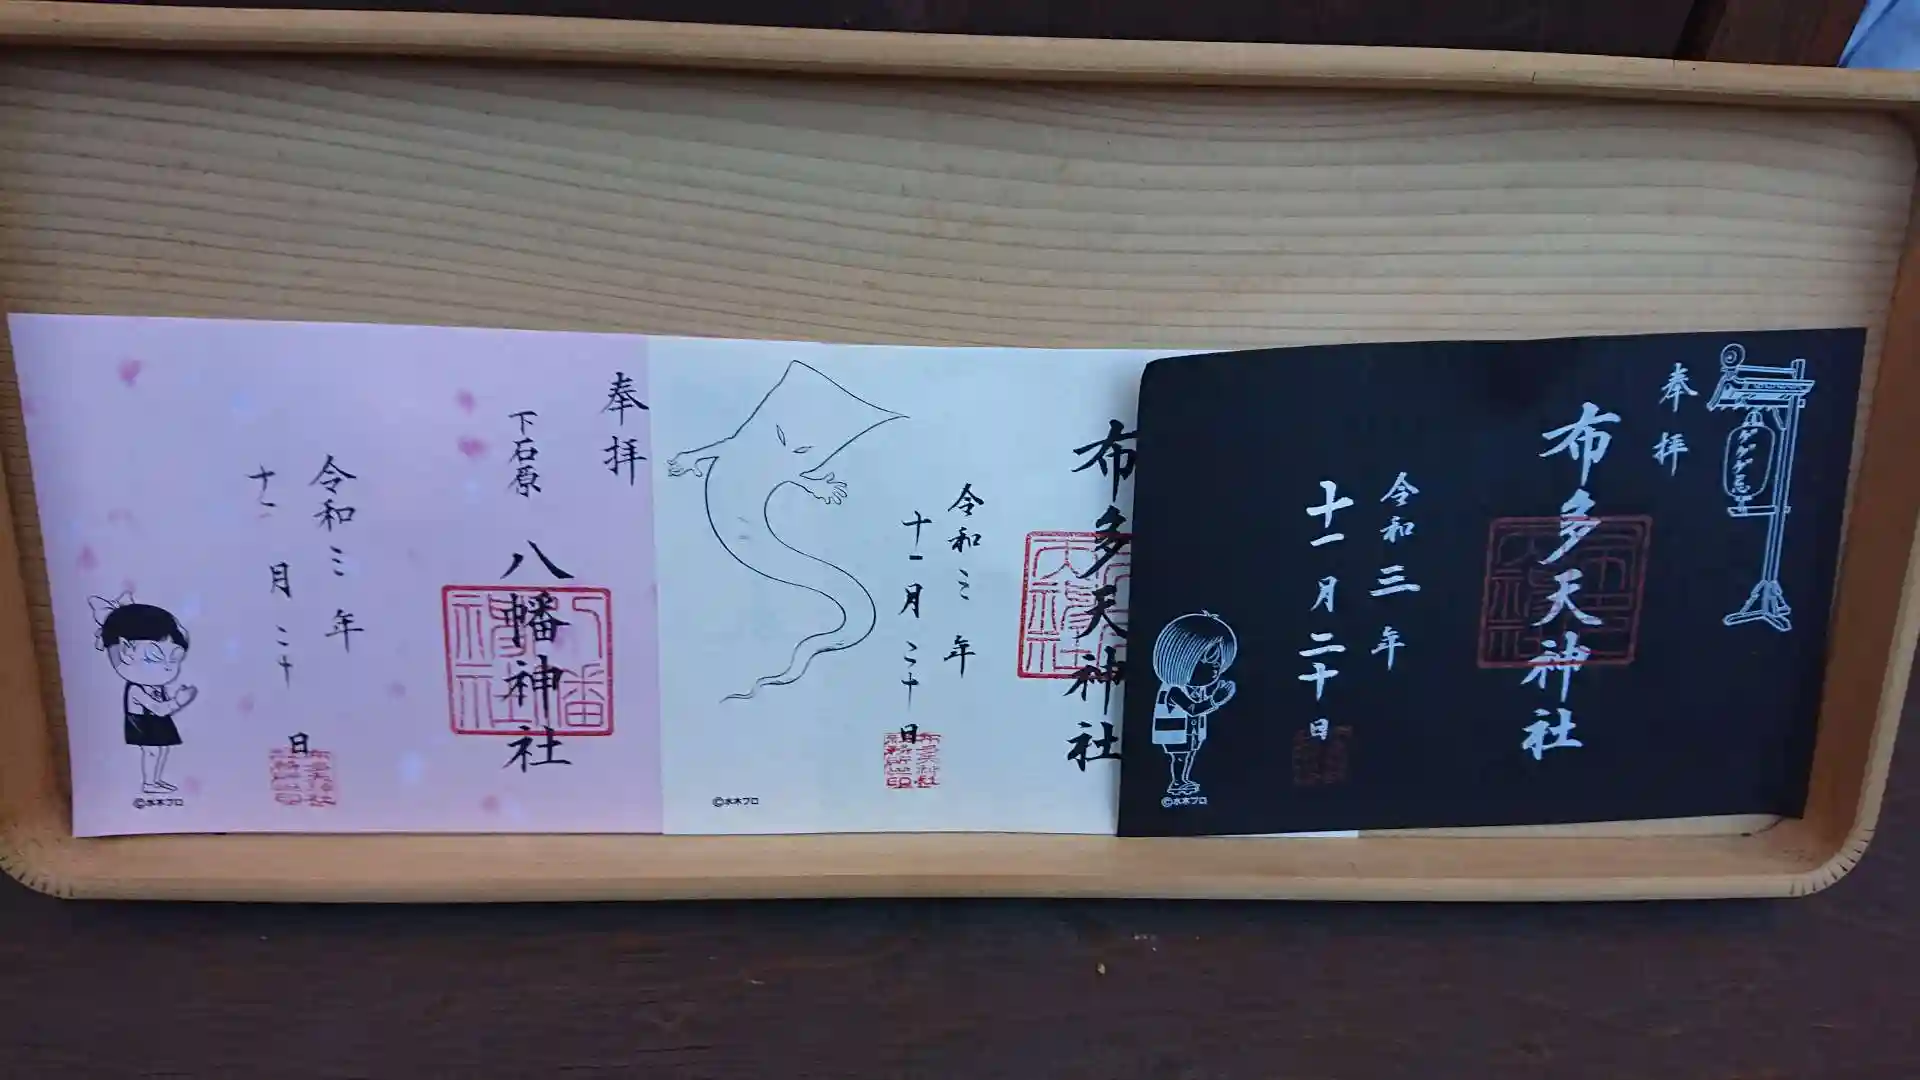 奉拝
下石原 八幡神社
令和三年
十一月二十日
©水木プロ
布多天神社
令和三年
十一月二十日
©水木プロ
ゲゲゲ忌
奉拝
布多天神社
令和三年
十一月二十日
©水木プロ